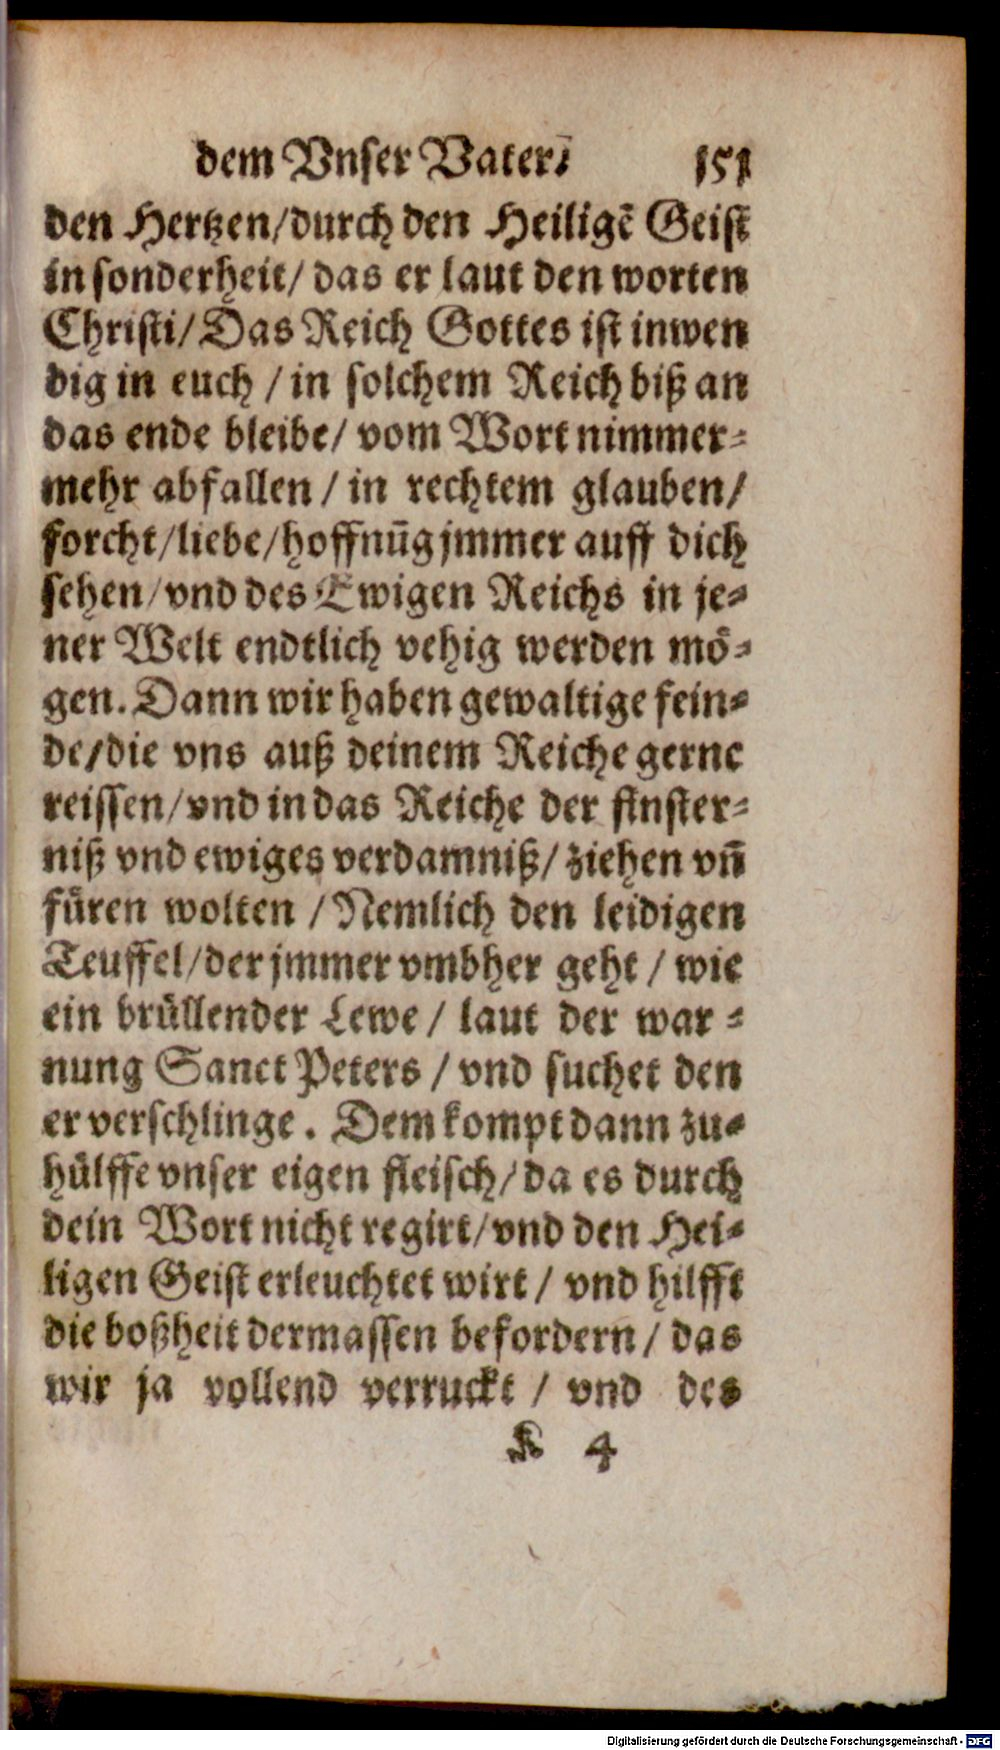 dem Vnser Vater. 151
den Hertzen/durch den Heiligē Geist
in sonderheit/ das er laut den worten
Christi/ Das Reich Gottes ist inwen
dig in euch / in solchem Reich biß an
das ende bleibe/ vom Wort nimmer-
mehr abfallen / in rechtem glauben/
forcht/liebe/hoffnūg jmmer auff dich
sehen/vnd des Ewigen Reichs in je-
ner Welt endtlich vehig werden mö-
gen. Dann wir haben gewaltige fein-
de/die vns auß deinem Reiche gerne
reissen/vnd in das Reiche der finster-
niß vnd ewiges verdamniß/ ziehen vn̄
füren wolten / Nemlich den leidigen
Teuffel/der jmmer vmbher geht / wie
ein brüllender Lewe / laut der war-
nung Sanct Peters / vnd suchet den
er verschlinge. Dem kompt dann zu-
hülffe vnser eigen fleisch/ da es durch
dein Wort nicht regirt/vnd den Hei-
ligen Geist erleuchtet wirt / vnd hilfft
die boßheit dermassen befordern/ das
wir ja vollend verruckt / vnd des
K 4
Digitalisierung gefördert durch die Deutsche Forschungsgemeinschaft - DFG